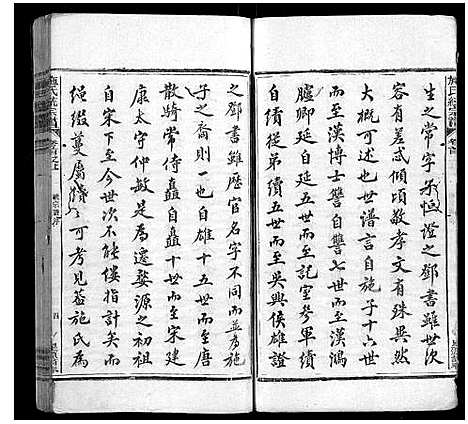 施氏統宗譜
卷首
生之常字子恒澄之鄧書雖世次
容有貳傾頃敬孝文有殊異然
大槩可述也世譜言自施子十六世
而至漢博士讐自讐七世而至漢鴻
臚卿延自延五世而至記室參軍績
自績從弟績五世而至吳興侯雄證
之鄧書雖歷官名字不同而並為施
子之裔則一也自雄十五世而至唐
散騎常侍矗自矗十世而至宋建
康太守仲敏是為遷婺源之初祖
自宋下至今世次不能僂指計矣而
綿綴蔓廣 可考見蓋施氏為
施氏統宗譜
卷首之上
四